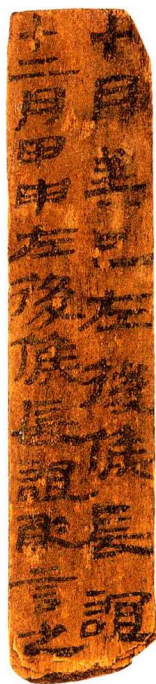 十月癸巳左後候長
十二月甲申左後候長敢言之